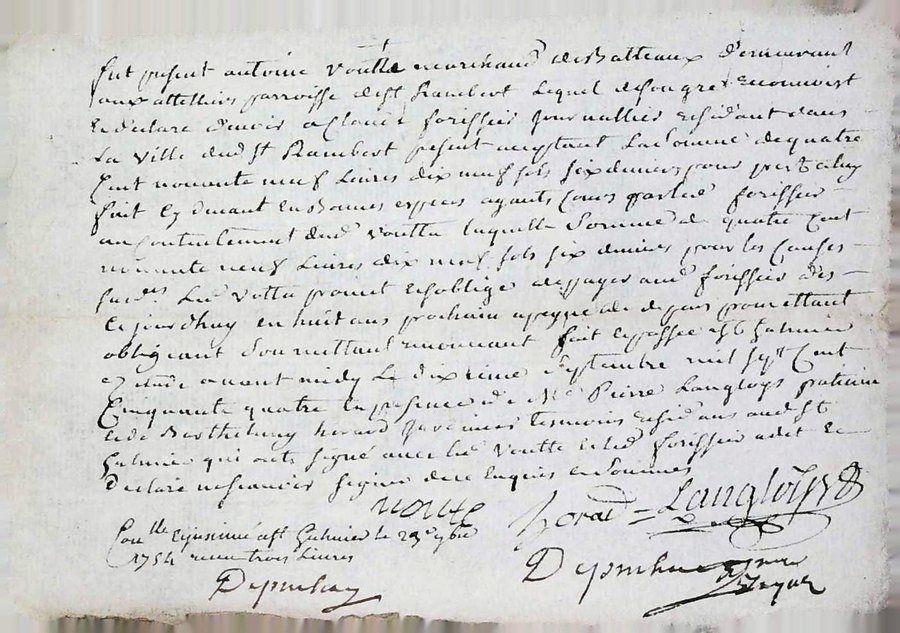 fut present antoine voutte marchand de Batteaux demeurant
aux attelliers parroisse de st Rambert Lequel de son gré Reconnoist
Et declare devoir a Claude forissier journallier residant dans
La ville dud st Rambert present acceptant La somme de quatre
Cent nonante neuf Livres dix neuf sols six deniers pour
fait Cy devant En bonnes especes ayants Cours forissier
au Contentement dud voutte laquelle somme de quatre Cent
nonante neuf Livres dix neuf sols six deniers pour les Causes
Led voutte promet Et soblige de payer aud forissier des
Ce jourdhuy En huit ans prochain a peyne de depens promettant
obligeant soumettant renonçant fait Et passé a st Galmier
Etude avant midy Le dixieme septembre mil sept Cent
Cinquante quatre En presence de Me Pierre Langloys praticien
Et de Barthelemy herard temoins residans aud st
Galmier qui ont signé avec led voutte Et led forissier a dit Et
Declaré ne scavoir signer de ce Enquis Et sommés
voutte
herard = Langloys
Conlle Et insinué a st Galmier le 7bre
1754 recu trois Livres
Depruhay
Depruhay